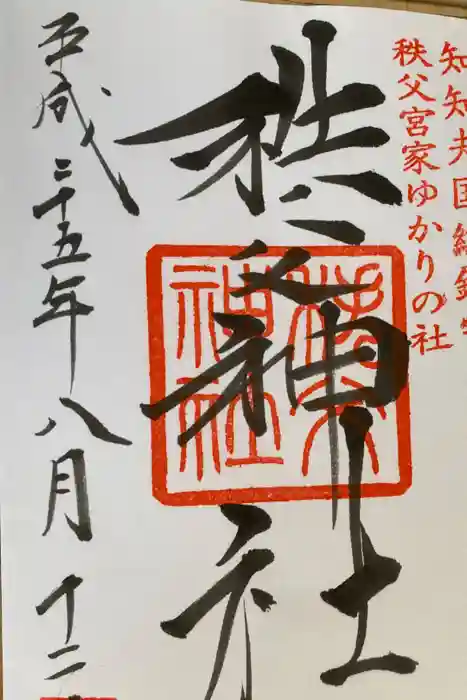 知知夫国総鎮守
秩父宮家ゆかりの社
秩父神社
平成二十五年八月十二